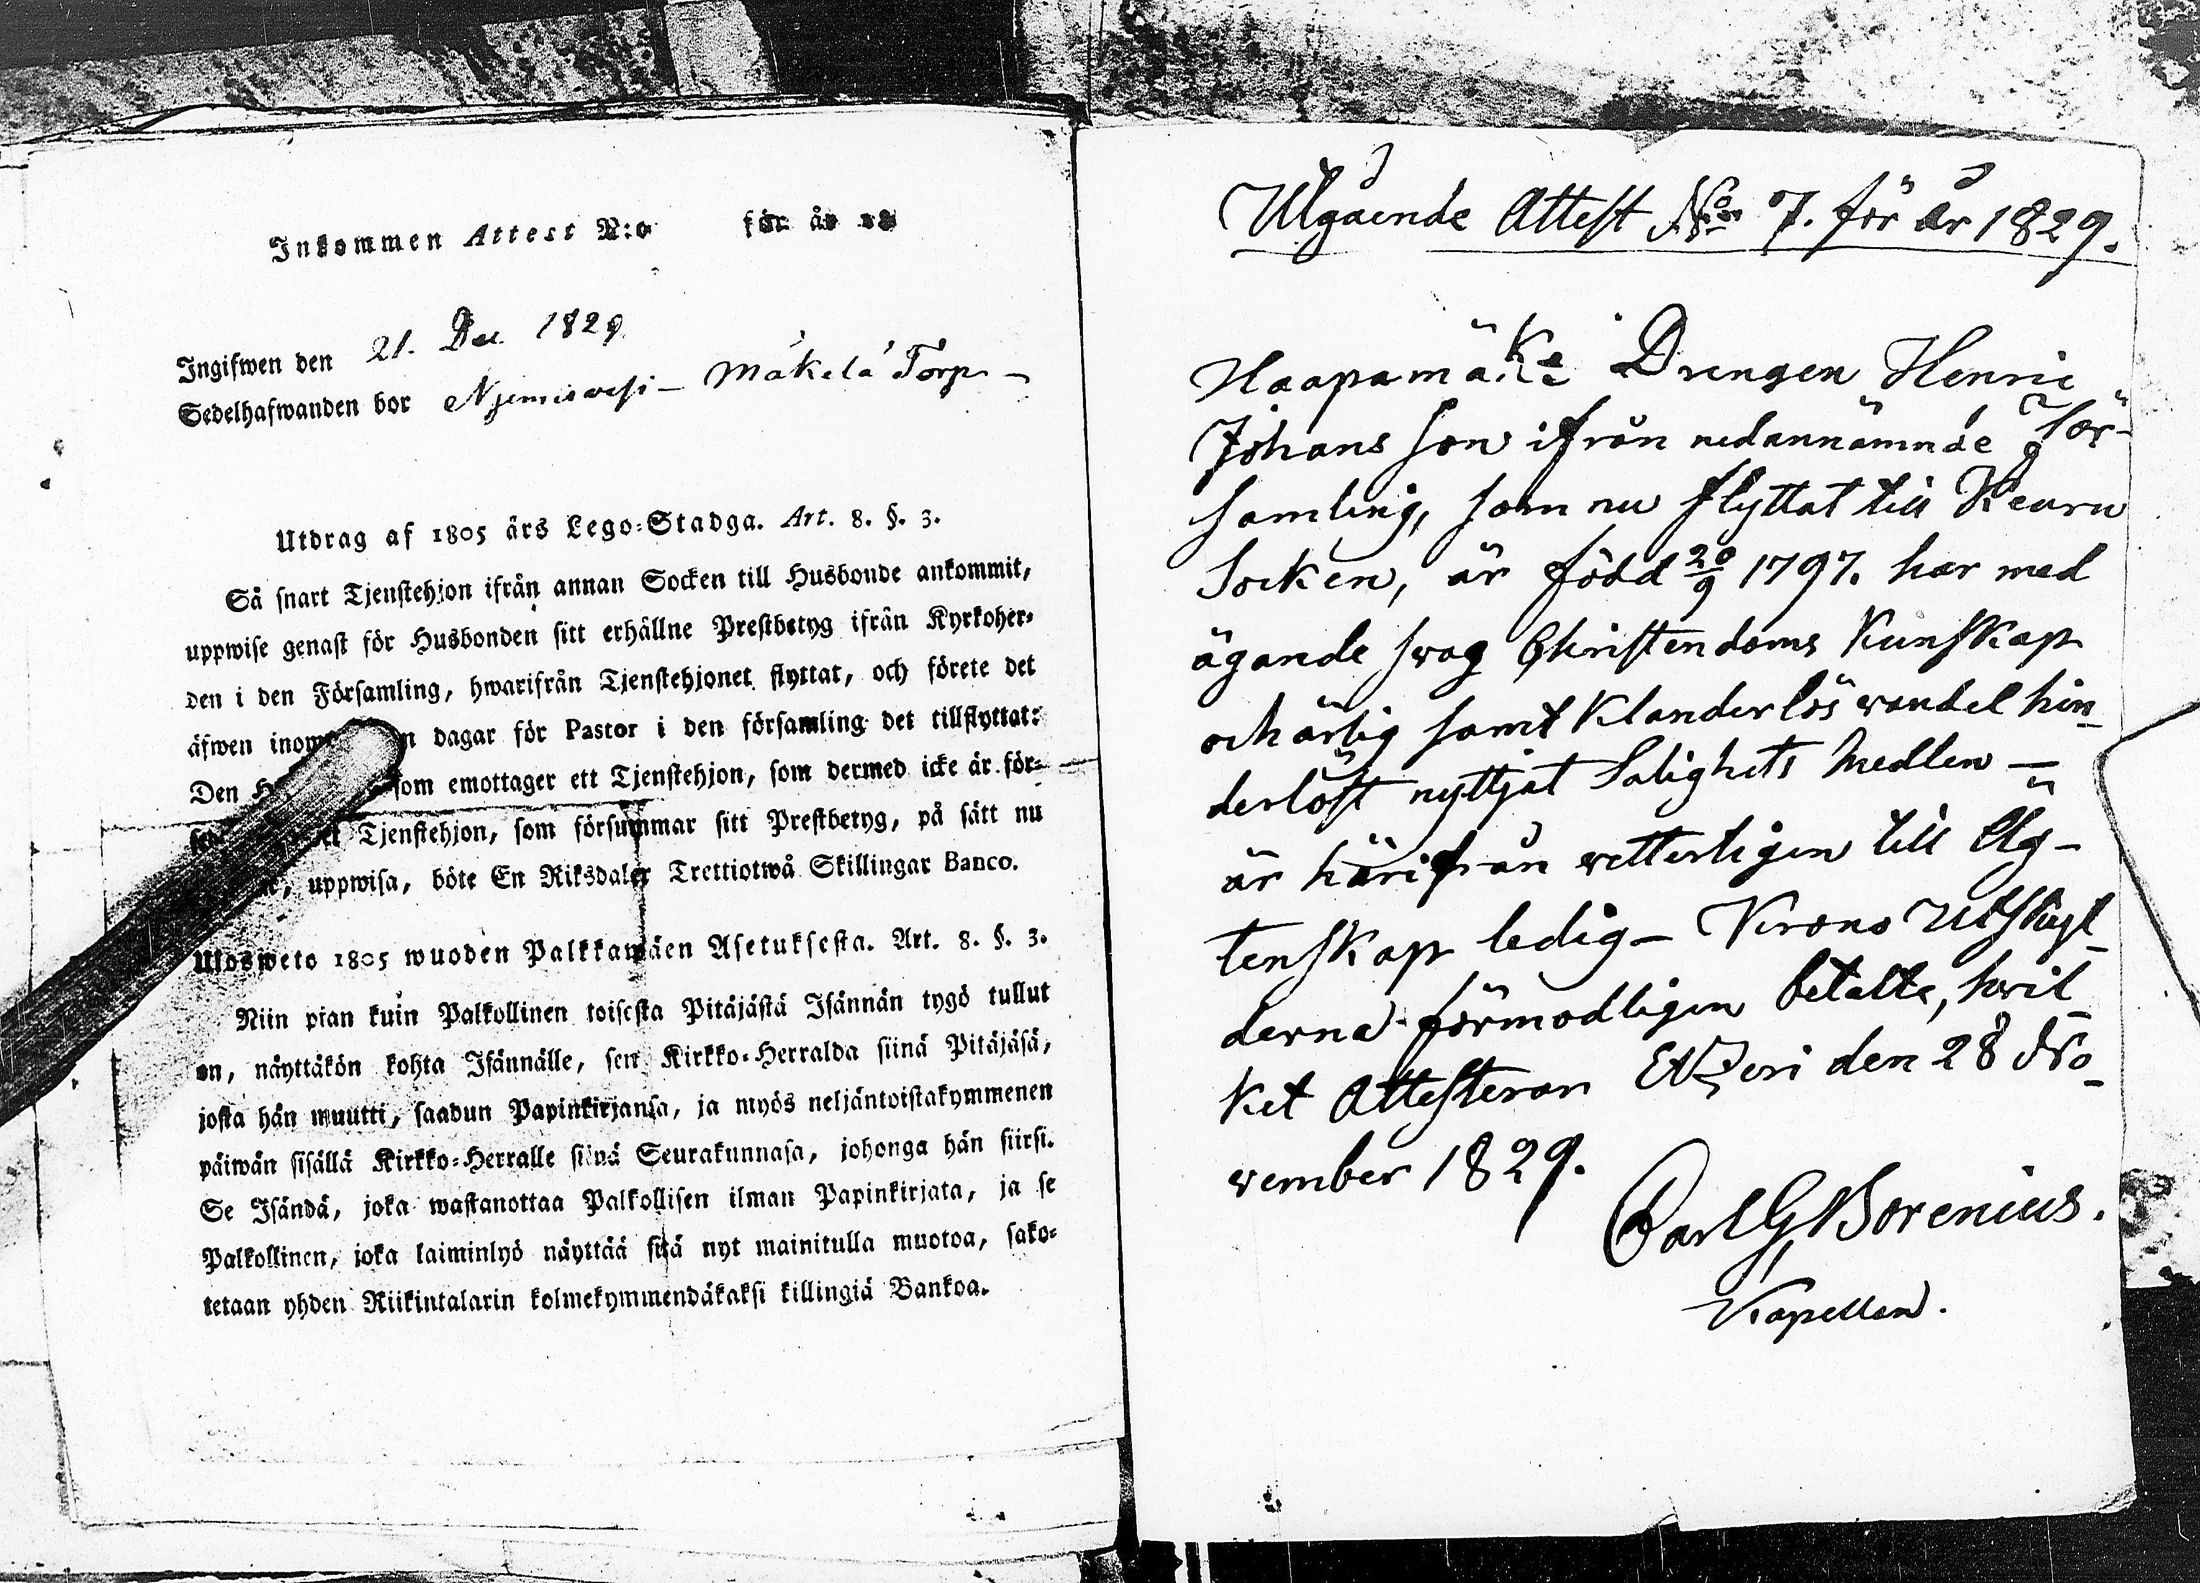 Inkommen Attest N:o för år 18
Ingifwen den 21. Dec. 1829
Sedelhafwanden bor Njemisvesi – Mäkelä Torp –
Utdrag af 1805 års Lego-Stadga. Art. 8. §. 3.
Så snart Tjenstehjon ifrån annan Socken till Husbonde ankommit,
uppwise genast för Husbonden sitt erhållne Prestbetyg ifrån Kyrkoher-
den i den Församling, hwarifrån Tjenstehjonet flyttat, och förete det
äfwen dagar för Pastor i den församling det tillflyttat:
Den som emottager ett Tjenstehjon, som dermed icke är för-
Tjenstehjon, som försummar sitt Prestbetyg, på sätt nu
uppwisa, böte En Riksdaler Trettiotwå Skillingar Banco.
Ulosweto 1805 wuoden Palkkawäen Asetuksesta. Art. 8. §. 3.
Niin pian kuin Palkollinen toisesta Pitäjästä Isännän tygö tullut
on, näyttäkön kohta Isännälle, sen Kirkko-Herralda siinä Pitäjäsä,
josta hän muutti, saadun Papinkirjansa, ja myös neljäntoistakymmenen
päiwän sisällä Kirkko-Herralle siinä Seurakunnasa, johonga hän siirsi.
Se Isändä, joka wastanottaa Palkollisen ilman Papinkirjata, ja se
Palkollinen, joka laiminlyö näyttää sitä nyt mainitulla muotoa, sako-
tetaan yhden Riikintalarin kolmekymmendäkaksi killingiä Bankoa.
Utgående Attest No 7. för år 1829.
Haapamäke Drengen Henric
Johans son ifrån nedannämnde För-
samling, som nu flyttat till Keuru
Socken, är född 20/9 1797. har med
ägande swag Christendoms Kunskap
och ärlig samt Klanderlös wandel hin-
derlöst nyttjat Salighets Medlen –
är härifrån wetterligen till Äg-
tenskap ledig – Krono Utskyl-
derna förmodligen betalte, hwil-
ket Attesterar Etzeri den 28 No-
wember 1829.
Carl G Borenius.
Kapellan.